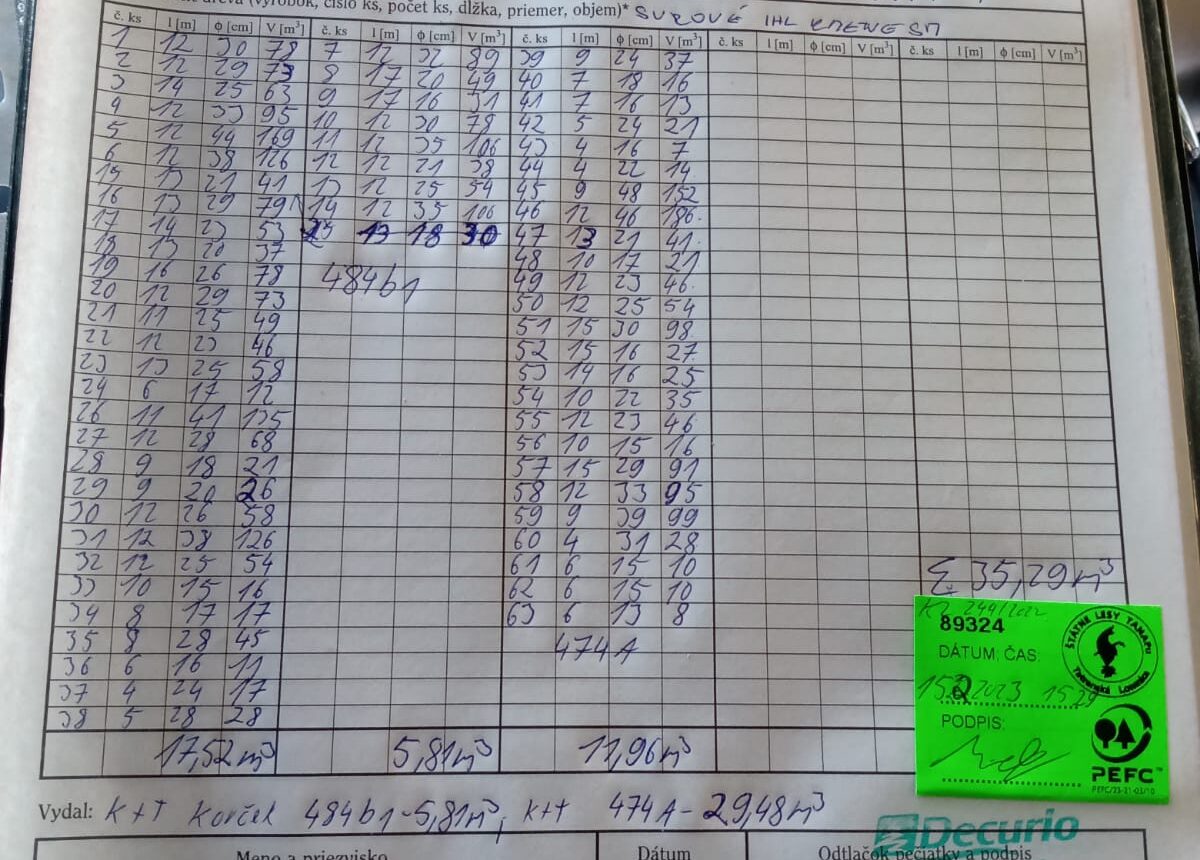 dreva (výrobok, číslo ks, počet ks, dĺžka, priemer, objem)* SUROVÉ IHL KMENE SM
č. ks l [m] ϕ [cm] V [m³] č. ks l [m] ϕ [cm] V [m³] č. ks l [m] ϕ [cm] V [m³] č. ks l [m] ϕ [cm] V [m³] č. ks l [m] ϕ [cm] V [m³]
1 12 30 78 7 12 32 89 39 9 24 37
2 12 29 73 8 17 20 49 40 7 18 16
3 14 25 63 9 17 16 31 41 7 16 13
4 12 33 95 10 12 30 78 42 5 24 21
5 12 44 169 11 12 35 106 43 4 16 7
6 12 38 126 12 12 21 38 44 4 22 14
15 13 21 41 13 12 25 54 45 9 48 152
16 13 29 79 14 12 35 106 46 12 46 186
17 14 23 53 25 13 18 30 47 13 21 41
18 13 20 37 48 10 17 21
19 16 26 78 484b1 49 12 23 46
20 12 29 73 50 12 25 54
21 11 25 49 51 15 30 98
22 12 23 46 52 15 16 27
23 13 25 58 53 14 16 25
24 6 17 12 54 10 22 35
26 11 41 135 55 12 23 46
27 12 28 68 56 10 15 16
28 9 18 21 57 15 29 91
29 9 20 26 58 12 33 95
30 12 26 58 59 9 39 99
31 12 38 126 60 4 31 28
32 12 25 54 61 6 15 10
33 10 15 16 62 6 15 10
34 8 17 17 63 6 13 8
35 8 28 45 474A
36 6 16 11
37 4 24 17
38 5 28 28
Σ 35,29m³
17,52m³ 5,81m³ 11,96m³
244/2022
89324
DÁTUM: ČAS:
2023 15
PODPIS:
ŠTÁTNE LESY TANAPU
Tatranská Lomnica
PEFC™
PEFC/23-21-03/10
Vydal: K+T Korček 484b1-5,81m³, K+T 474A-29,48m³
Decurio
Meno a priezvisko Dátum Odtlačok pečiatky a podpis